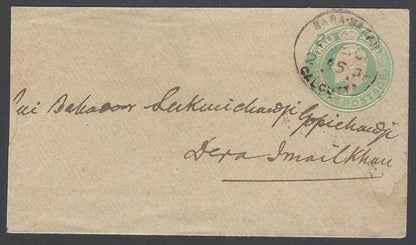 BARA BAZAR
CALCUTTA
POSTAGE
Rai Bahadoor Lukmichandji Gopichandji
Dera Ismailkhan